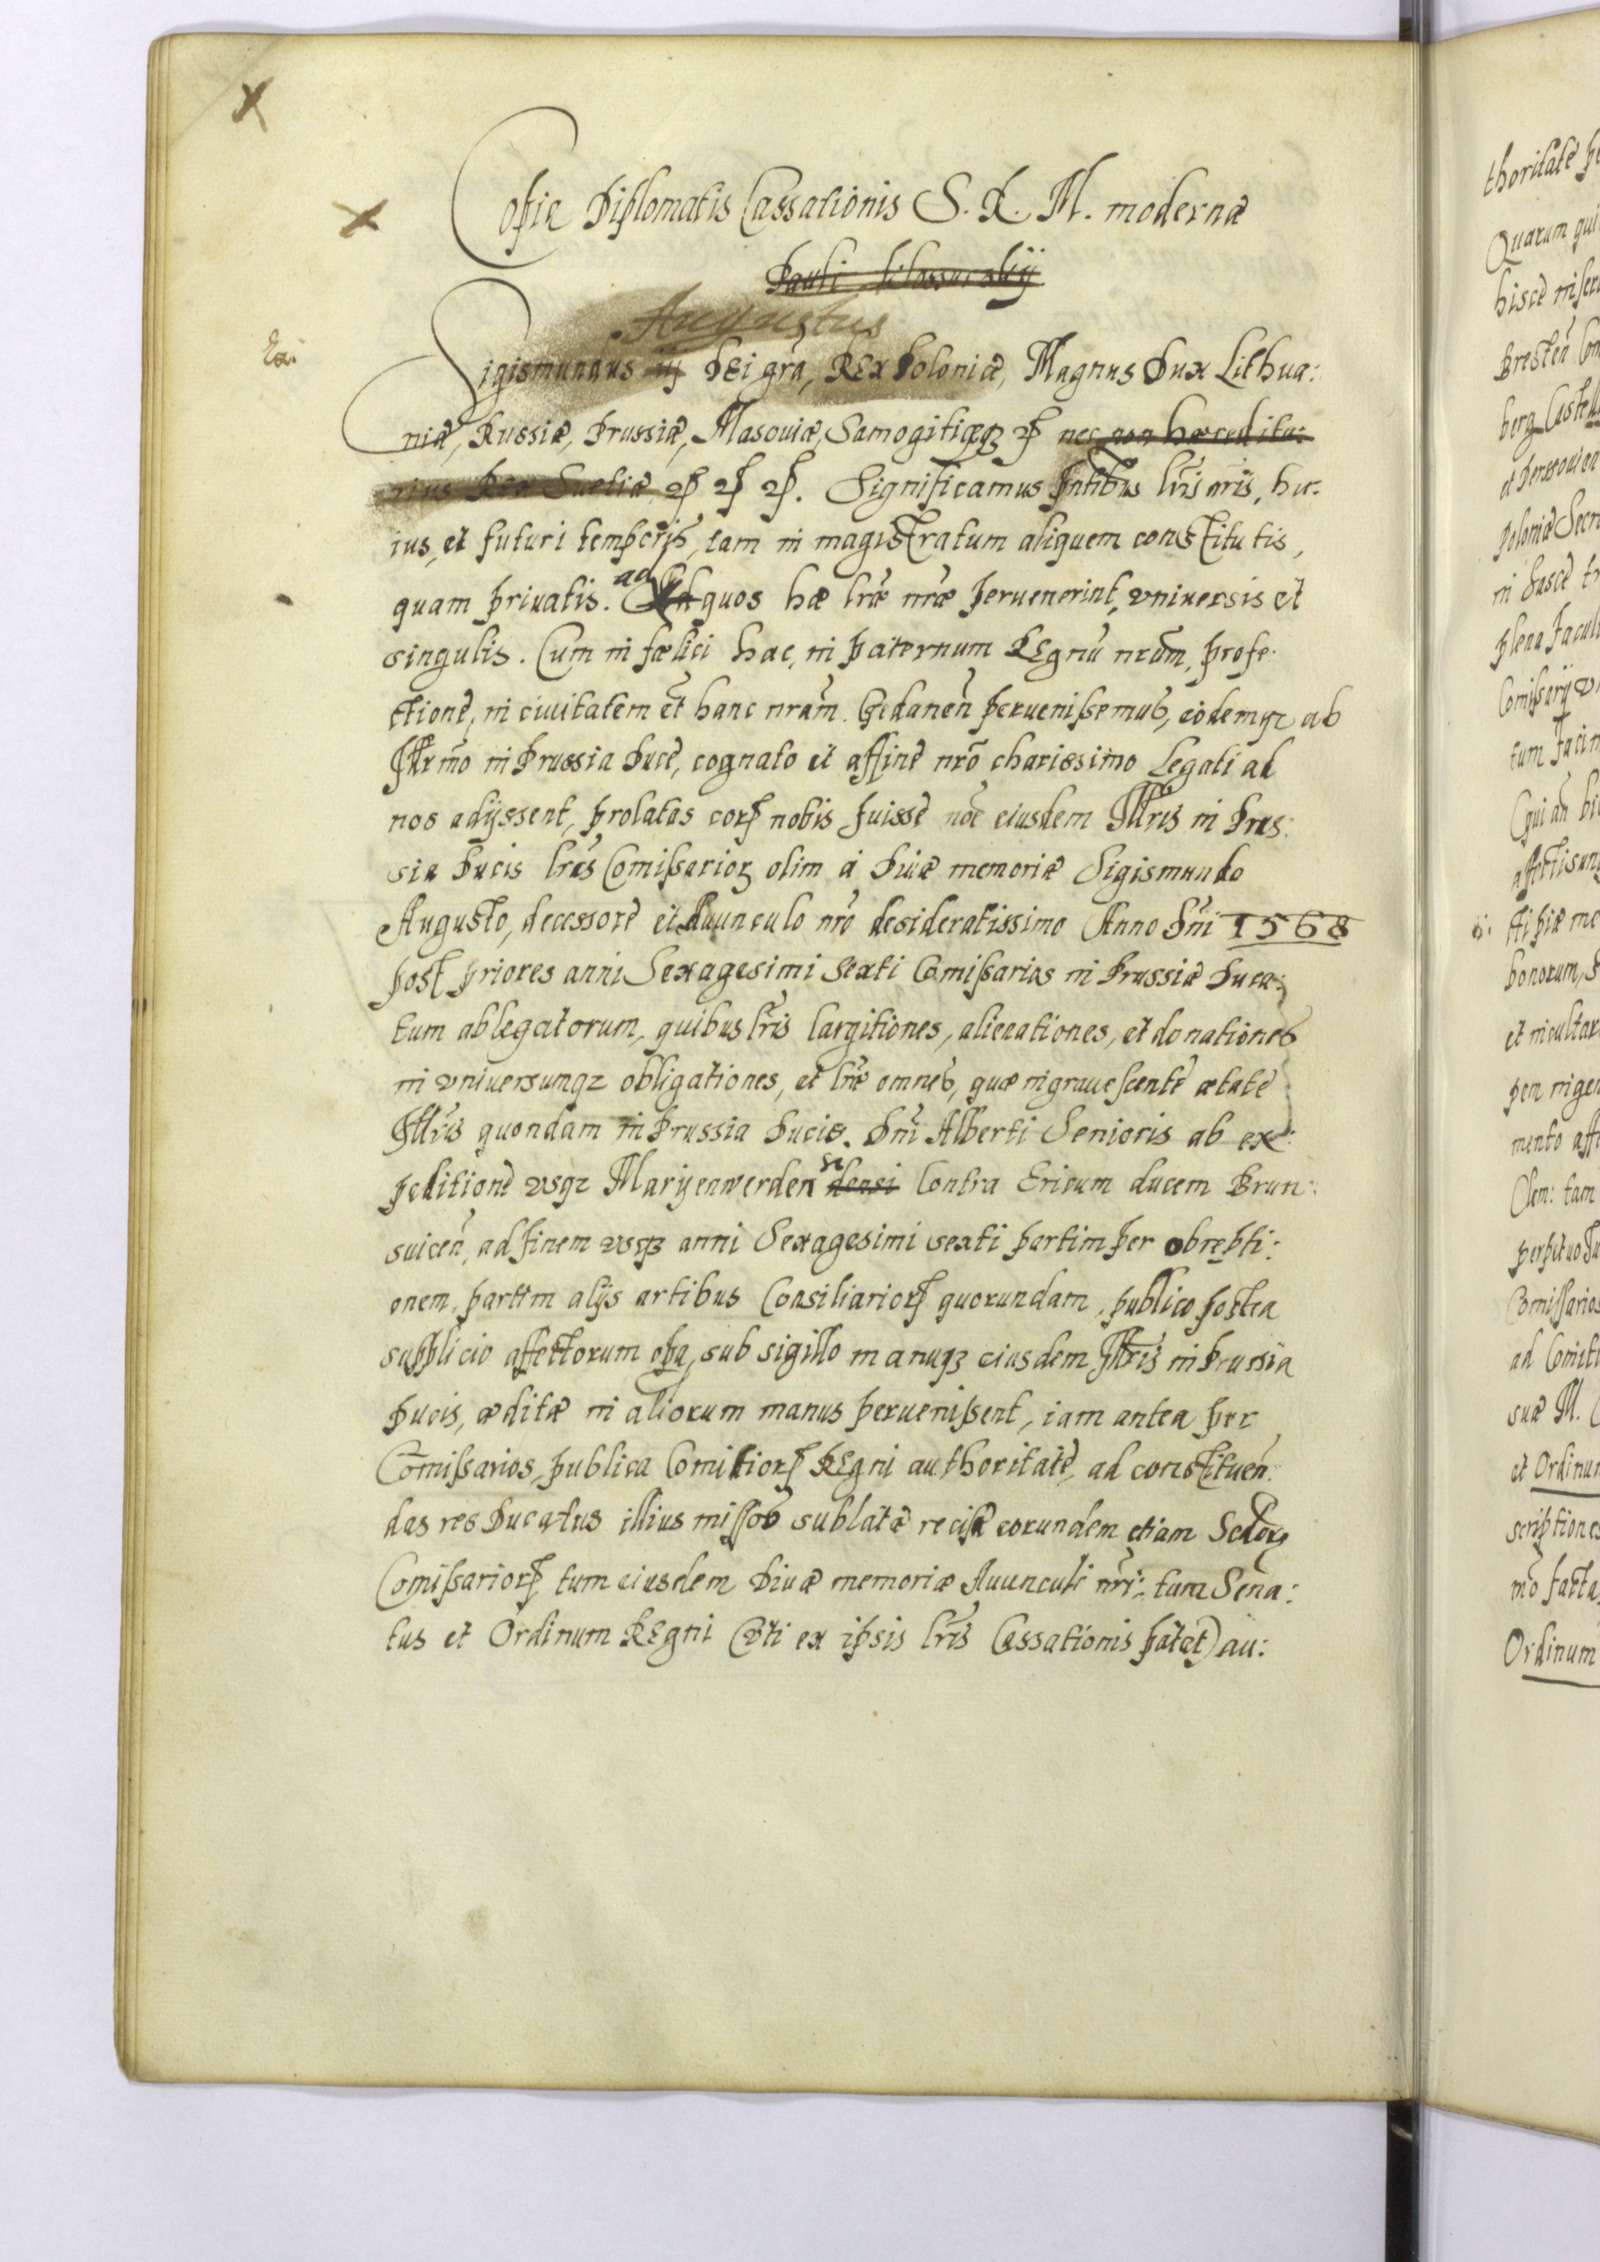 Copia Diplomatis Cassationis S. R. M. modernæ
Pauli
Augustus
Sigismundus iij DEi gra, REx Poloniæ, Magnus Dux Lithua:
niæ, Russiæ, Prussiæ, Masouiæ, Samogitiæqz nec non hæredita:
rius Rex Suetiæ Significamus pntibus lris nris, hu:
ius, et futuri temporis, tam in magistratum aliquem constitutis,
quam priuatis. ad quos hæ lræ nræ peruenerint, vniuersis et
singulis. Cum in fœlici hac, in paternum REgnū nrūm, profe:
ctione, in ciuitatem et hanc nram Gedanen peruenissemus, eodemqz ab
Illrmo in Prussia Duce, cognato et affine nrō charissimo Legati ad
nos adijssent, prolatas coram nobis fuisse noe eiusdem Illris in Prus:
sia Ducis lras Comissarior olim à Diuæ memoriæ Sigismundo
Augusto, decessore et Auunculo nrō desideratissimo Anno Dni 1568
post priores anni Sexagesimi Sexti Comissarios in Prussiæ Duca:
tum ablegatorum, quibus lris largitiones, alienationes, et donationes
in vniuersumqz obligationes, et lræ omnes, quæ ingrauescente ætate
Illris quondam in Prussia Ducis. Dni Alberti Senioris ab ex:
peditione vsqz Marijenwerden densi Contra Ericum ducem Brun:
suicen, ad finem vsqz anni Sexagesimi sexti partim per obrepti:
onem, partim alijs artibus Consiliarior quorundam, publico postea
supplicio affectorum opa, sub sigillo manuqz eiusdem Illris in Prussia
Ducis, æditæ in aliorum manus peruenissent, iam antea per
Comissarios, publica Comitior REgni authoritate, ad constituen:
das res Ducatus illius missos sublatæ recisæ eorundem etiam
Comissarior, tum eiusdem Diuæ memoriæ Auunculi nri: tum Sena:
tus et Ordinum REgni (vti ex ipsis lris Cassationis patet) au:
thoritate
Quarum
hisce
Bresten
berg
et
Poloniæ
in hasce
plena
Comissarij
tum
affectis
Ai piæ
bonorum,
et
mento
Olem: tam
perpetuo
Comissarios
ad
suæ M.
et Ordinum
scriptiones
mo facta
Ordinum